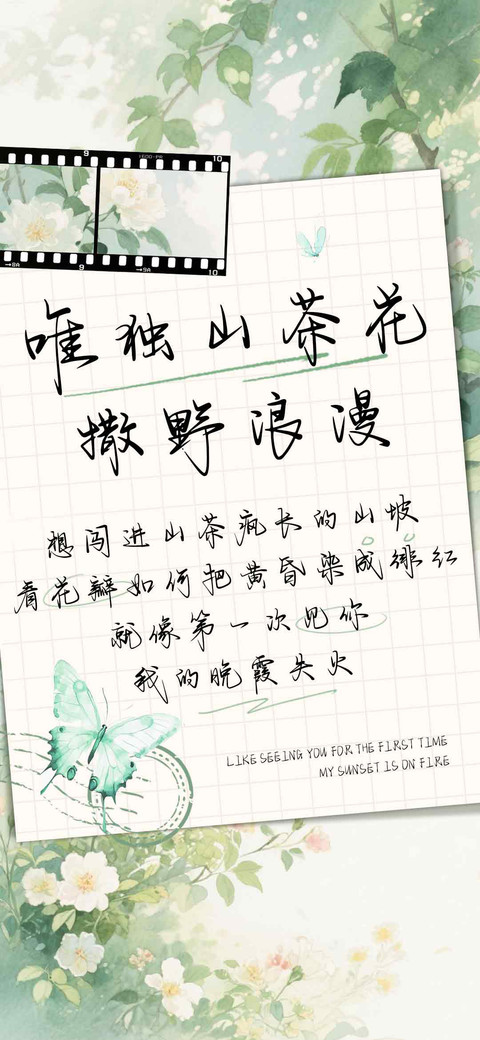 9
1600-PR
10
→8A
9
→9A
10
唯独山茶花
撒野浪漫
想闯进山茶疯长的山坡
看花瓣如何把黄昏染成绯红
就像第一次见你
我的晚霞失火
LIKE SEEING YOU FOR THE FIRST TIME
MY SUNSET IS ON FIRE